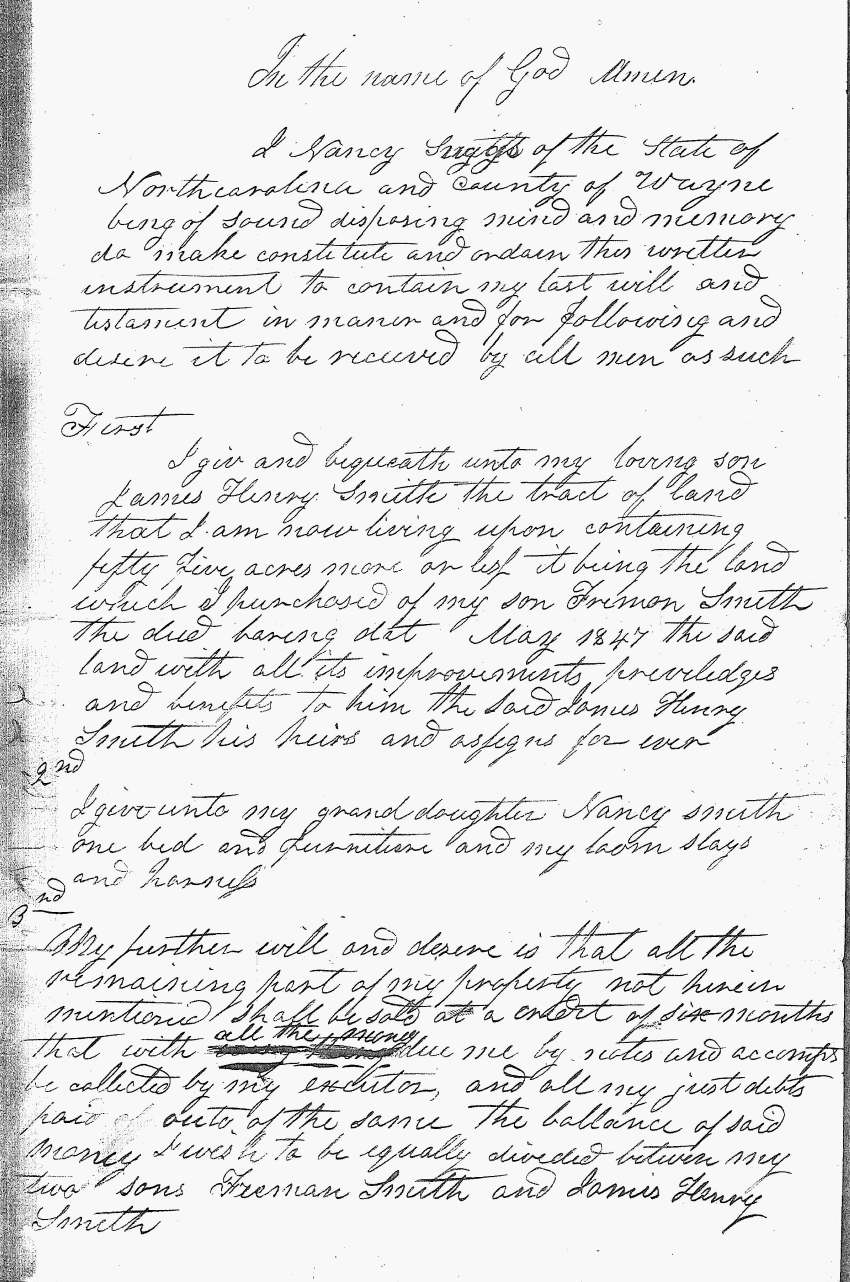 In the name of God Amen.
I Nancy of the State of
Northcarolina and County of Wayne
being of sound disposing mind and memory
do make constitute and ordain this written
instrument to contain my last will and
testament in maner and for following and
desire it to be received by all men as such
First
I giv and bequeath unto my loving son
James Henry Smith the tract of land
that I am now living upon containing
fifty five acres more or less it being the land
which I purchased of my son Freman Smith
the deed baring dat May 1847 the said
land with all its improvements priviledges
and benefits to him the said James Henry
Smith his heirs and assigns for ever
2nd
I give unto my grand doughter Nancy smith
one bed and furniture and my loom slays
and harness
3nd
My further will and desire is that all the
remaining part of my property not herein
mentioned shall be sold at a credit of six months
that with all the money due me by notes and accompts
be collected by my excutor, and all my just debts
paid of outo, of the same the ballance of said
money I wish to be equally divided between my
two sons Freeman Smith and James Henry
Smith